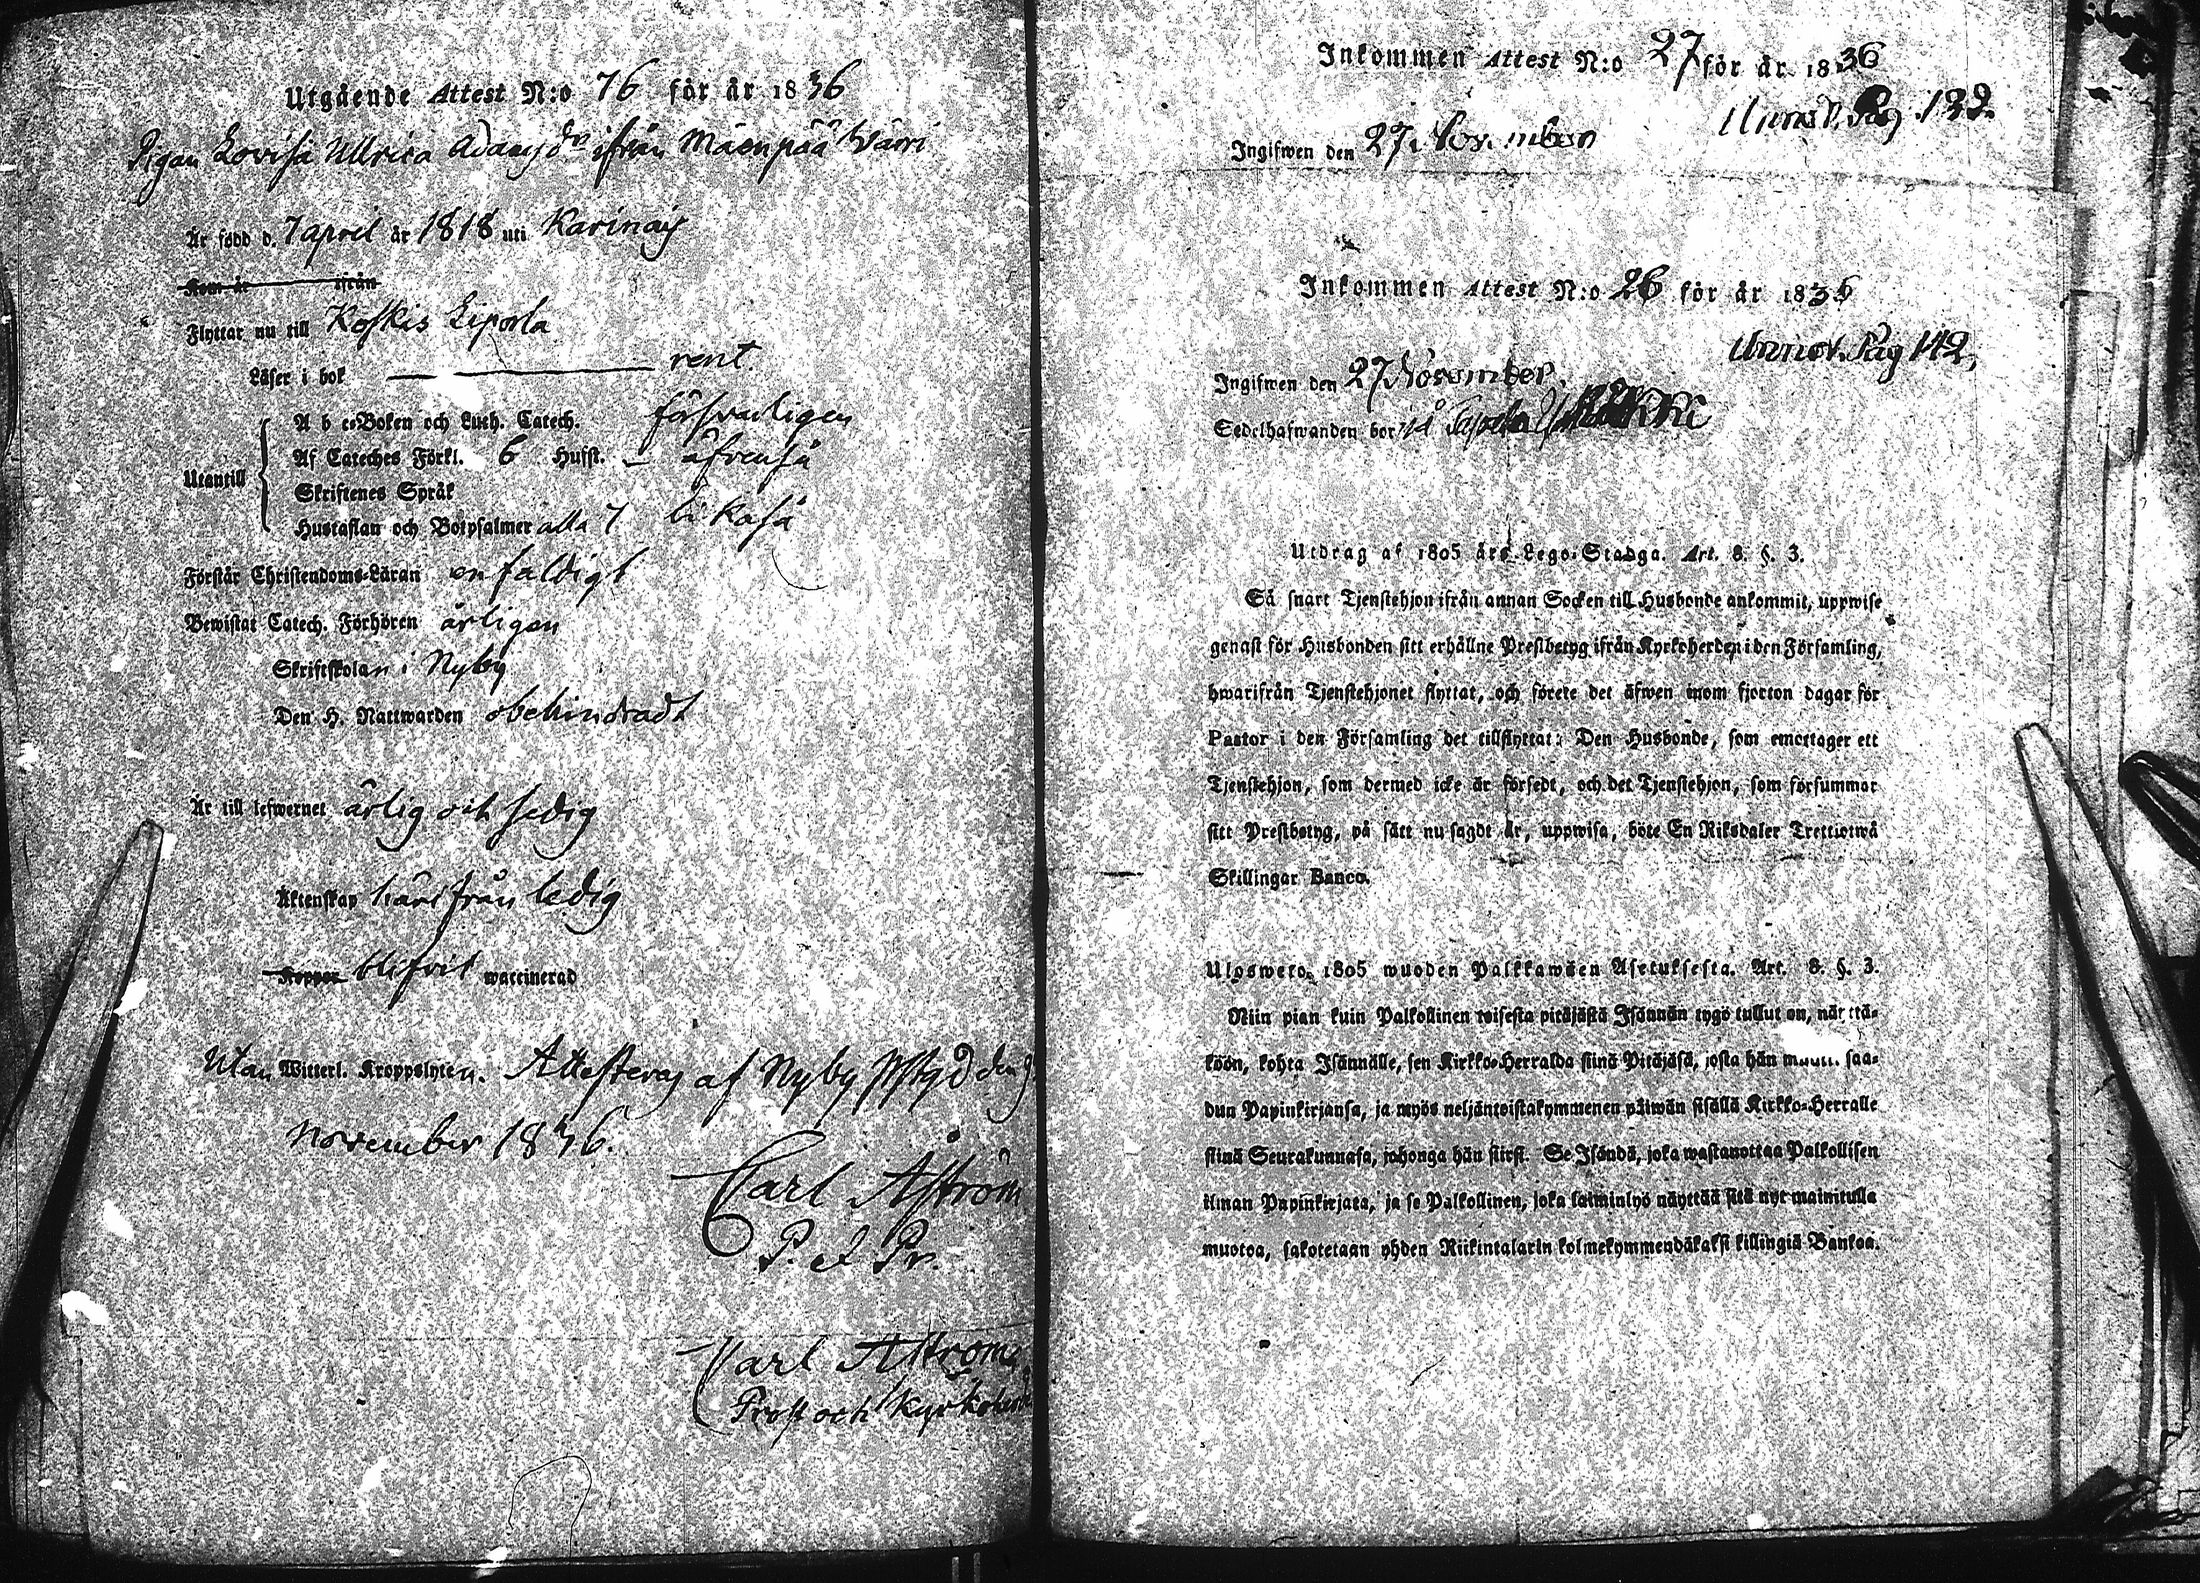 Utgående Attest N:o 76 för år 1836
Pigan Lovisa Ullrica Adamsdr ifrån Mäenpää Wäri
Är född d. 7 april år 1818 uti Karinais
Kom år ifrån
Flyttar nu till Koskis Liporla
Läser i bok rent.
Utantill
A b c-Boken och Luth. Catech. försvarligen
Af Cateches Förkl. 6 Hufst. - äfvenså
Skriftenes Språk
Hustaflan och Botpsalmer alla 7 likaså
Förstår Christendoms-Läran enfaldigt
Bewistat Catech. Förhören årligen
Skriftskolan i Nyby
Den H. Nattwarden obehindradt
Är till lefwernet ärlig och sedig
Äktenskap härifrån ledig
Koppor blifvit waccinerad
Utan Witterl. Kroppslyten. Attesteras af Nyby Pstgd den 9
November 1836.
Carl Åström
P. et Pr.
Carl Åström
Prost och Kyrkoherde
Inkommen Attest N:o 27 för år 1836
Annot. Pag. 132
Ingifwen den 27 November
Inkommen Attest N:o 26 för år 1836
Annot. Pag 142,
Ingifwen den 27 November.
Sedelhafwanden bor på
Utdrag af 1805 års Lego-Stadga. Art. 8. §. 3.
Så snart Tjenstehjon ifrån annan Socken till Husbonde ankommit, uppwise
genast för Husbonden sitt erhållne Prestbetyg ifrån Kyrkoherden i den Församling,
hwarifrån Tjenstehjonet flyttat, och förete det äfwen inom fjorton dagar för
Pastor i den Församling det tillflyttat: Den Husbonde, som emottager ett
Tjenstehjon, som dermed icke är försedt, och det Tjenstehjon, som försummar
sitt Prestbetyg, på sätt nu sagdt är, uppwisa, böte En Riksdaler Trettiotwå
Skillingar Banco.
Ulosweto 1805 wuoden Palkkawäen Asetuksesta. Art. 8. §. 3.
Niin pian kuin Palkollinen toisesta pitäjästä Isännän tygö tullut on, näyttä-
köön, kohta Isännälle, sen Kirkko-Herralda siinä Pitäjäsä, josta hän muutti saa-
dun Papinkirjansa, ja myös neljäntoistakymmenen päiwän sisällä Kirkko-Herralle
siinä Seurakunnasa, johonga hän siirsi. Se Isändä, joka wastanottaa Palkollisen
ilman Papinkirjata, ja se Palkollinen, joka laiminlyö näyttää sitä nyt mainitulla
muotoa, sakotetaan yhden Riikintalarin kolmekymmendäkaksi killingiä Bankoa.